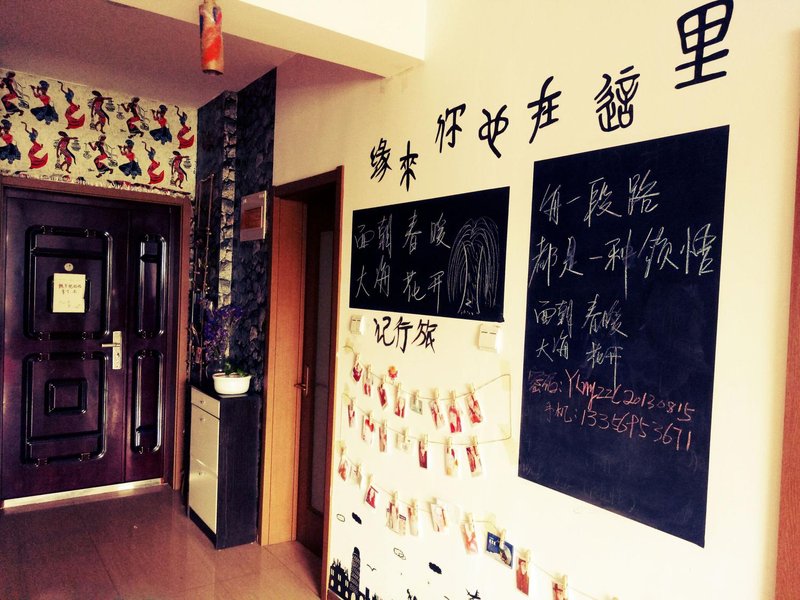 缘来你也在这里
面朝 春暖
大海 花开
记行旅
每一段路
都是一种领悟
面朝 春暖
大海 花开
密码:Ylmyzzl20130815
手机:13356953671